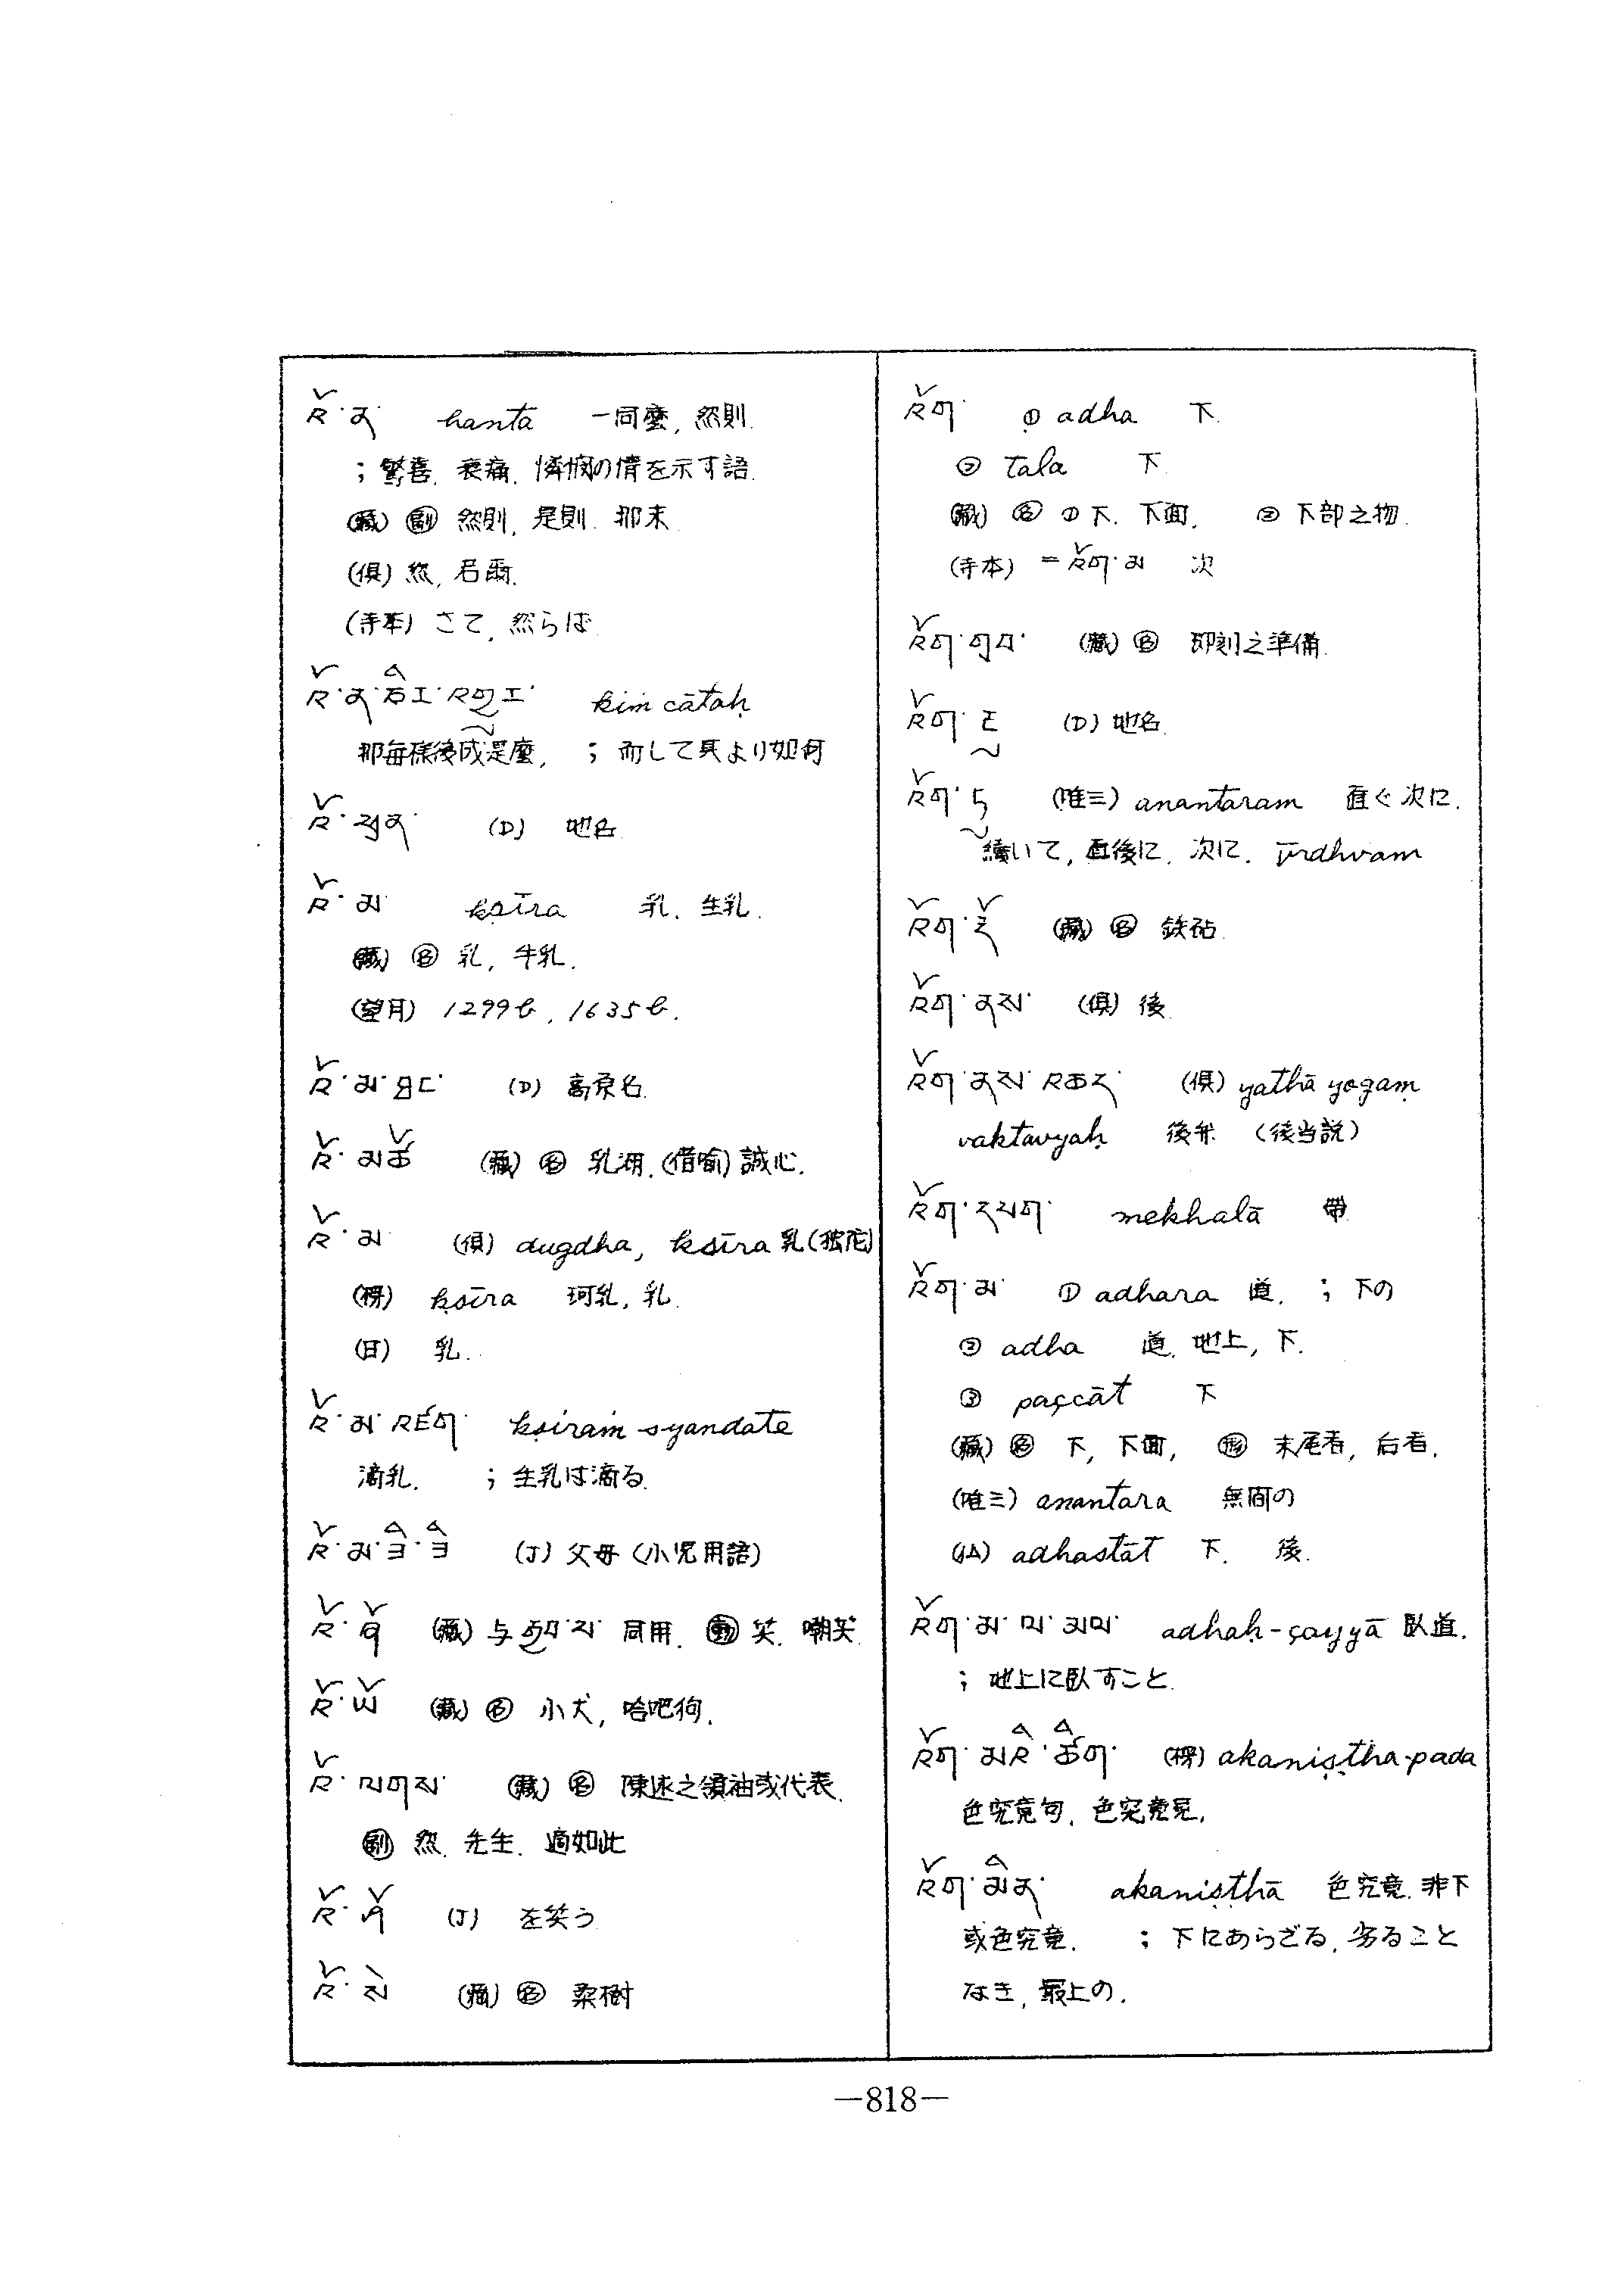 འོ་ན་ hanta 一同麼, 然則.
; 驚喜, 哀痛, 憐憫の情を示す語.
(藏) 副 然則, 是則. 那末
(倶) 然, 若爾.
(寺本) さて, 然らば
kiṁ cātaḥ
; 而して其より如何
(D) 地名
འོ་མ་ kṣīra 乳, 生乳.
(藏) 名 乳, 牛乳.
(望月) 1299b, 1635b.
(D)
འོ་མཚོ (藏) 名 乳湖. (借喻) 誠心.
འོ་མ་ (倶) dugdha, kṣīra 乳
kṣīra 珂乳, 乳.
乳.
འོ་མ་འཛག་ kṣiraṁ syandate
滴乳. ; 生乳は滴る.
འོ་མ་ཡེ་ཡེ (J) 父母 (小児用語)
(藏) 与 同用. 動 笑. 嘲笑
(藏) 名 小犬, 哈吧狗.
འོ་ལགས་ (藏) 名 陳述之領袖或代表.
副 然, 先生. 適如此
(J) を笑う
(藏) 名 桑樹
འོག་ ① adha 下
② tala 下
(藏) 名 ① 下. 下面. ② 下部之物.
(寺本) = འོག་མ 次
འོག་གྲབ་ (藏) 名 即刻之準備.
(D) 地名.
འོག་ཏུ (唯三) anantaram 直ぐ次に.
續いて, 直後に, 次に. ūrdhvam
(藏) 名 鉄砧.
འོག་ནས་ (倶) 後
འོག་ནས་འཆད་ (倶) yathā yogaṃ
vaktavyaḥ (後当説)
འོག་པག་ mekhalā 帶
འོག་མ་ ① adhara 道. ; 下の
② adha 道, 地上, 下.
③ paçcāt 下
(藏) 名 下, 下面, 形 末尾者, 后者.
(唯三) anantara 無間の
adhastāt 下. 後.
འོག་མ་ལ་ཉལ་ adhaḥ-çayyā 臥道.
; 地上に臥すこと.
akaniṣṭha-pada
色究竟句,
འོག་མིན་ akaniṣṭhā 色究竟. 非下
或色究竟. ; 下にあらざる, 劣ること
なき, 最上の.
—818—